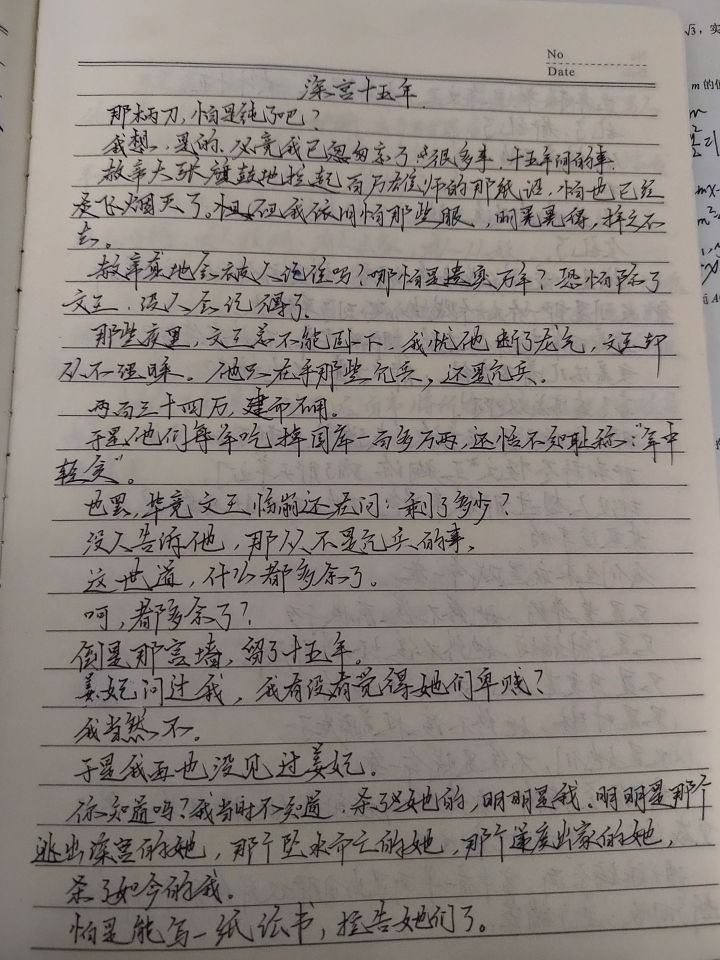 No
Date
深宫十五年.
那柄刀,怕是钝了吧?
我想,是的,必竟我已忽忽忘了很多事,十五年间的事.
赦帝大张旗鼓地拉起百万雄师的那纸诏,怕也已经
灰飞烟灭了。但我依旧怕那些眼,明晃晃得,挥之不
去。
赦帝真地会被人记住吗?哪怕是遗臭万年?恐怕除了
文王,没人会记得了.
那些夜里,文王总不能卧下.我忧他断了龙气,文王却
从不理睬.他只在乎那些冗兵,还是冗兵.
两百三十四万,建而不用。
于是他们每年吃掉国库一百多万两,还恬不知耻称:"年中
轻灾"。
也罢,毕竟文王临崩还在问:剩了多少?
没人告诉他,那从不是冗兵的事.
这世道,什么都多余了。
呵,都多余了?
倒是那宫墙,留了十五年.
姜妃问过我,我有没有觉得她们卑贱?
我当然不.
于是我再也没见过姜妃.
你知道吗?我当时不知道.杀了她的,明明是我.明明是那个
逃出深宫的她,那个坠水而亡的她,那个遁度出家的她,
杀了如今的我.
怕是能写一纸讼书,控告她们了。
√3,实
m 的值
m